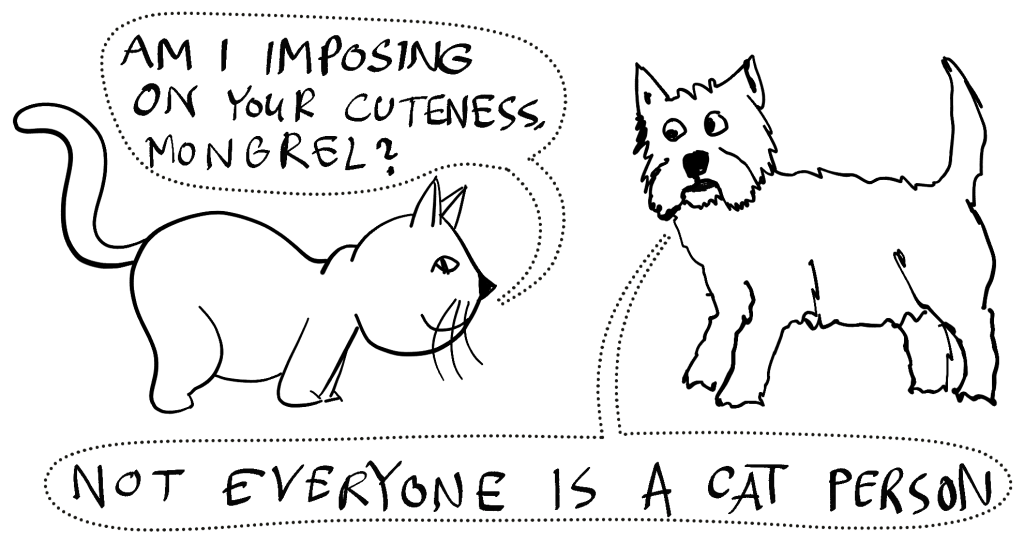 AM I IMPOSING
ON YOUR CUTENESS,
MONGREL?
NOT EVERYONE IS A CAT PERSON